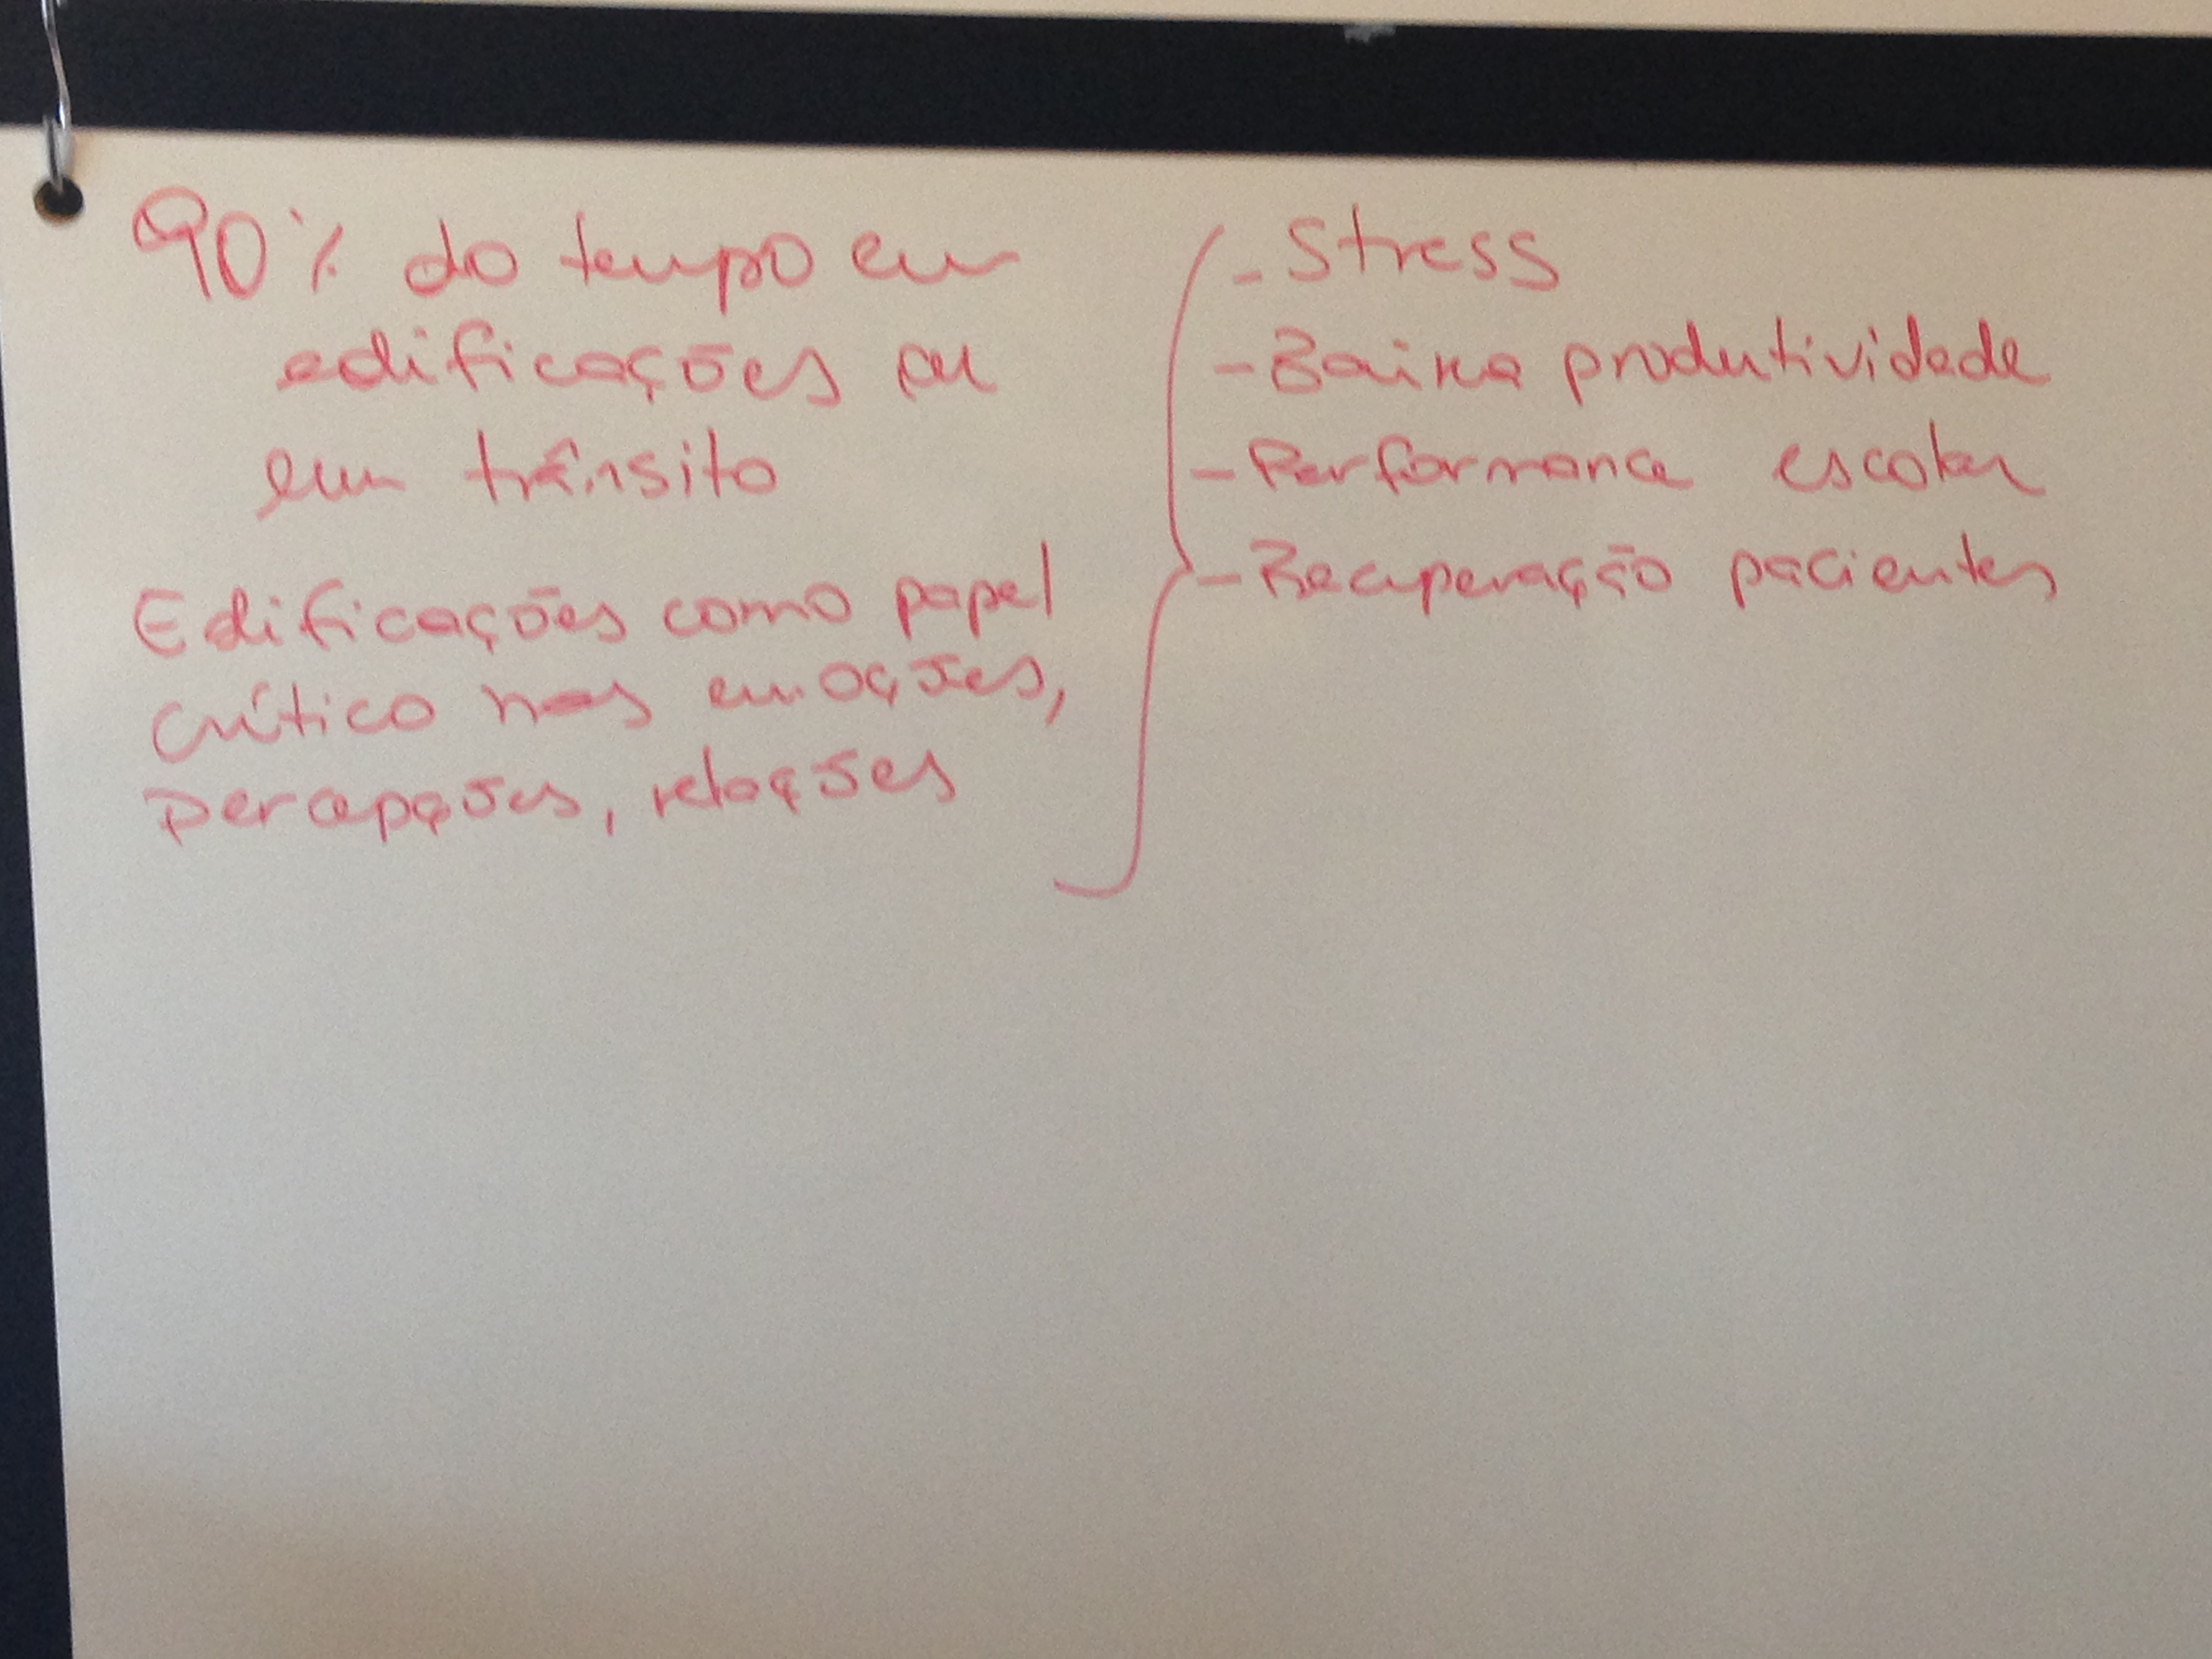 90% do tempo em
edificações ou
em trânsito
Edificações como papel
crítico nas emoções,
percepções, relações
- Stress
- Baixa produtividade
- Performance escolar
- Recuperação pacientes